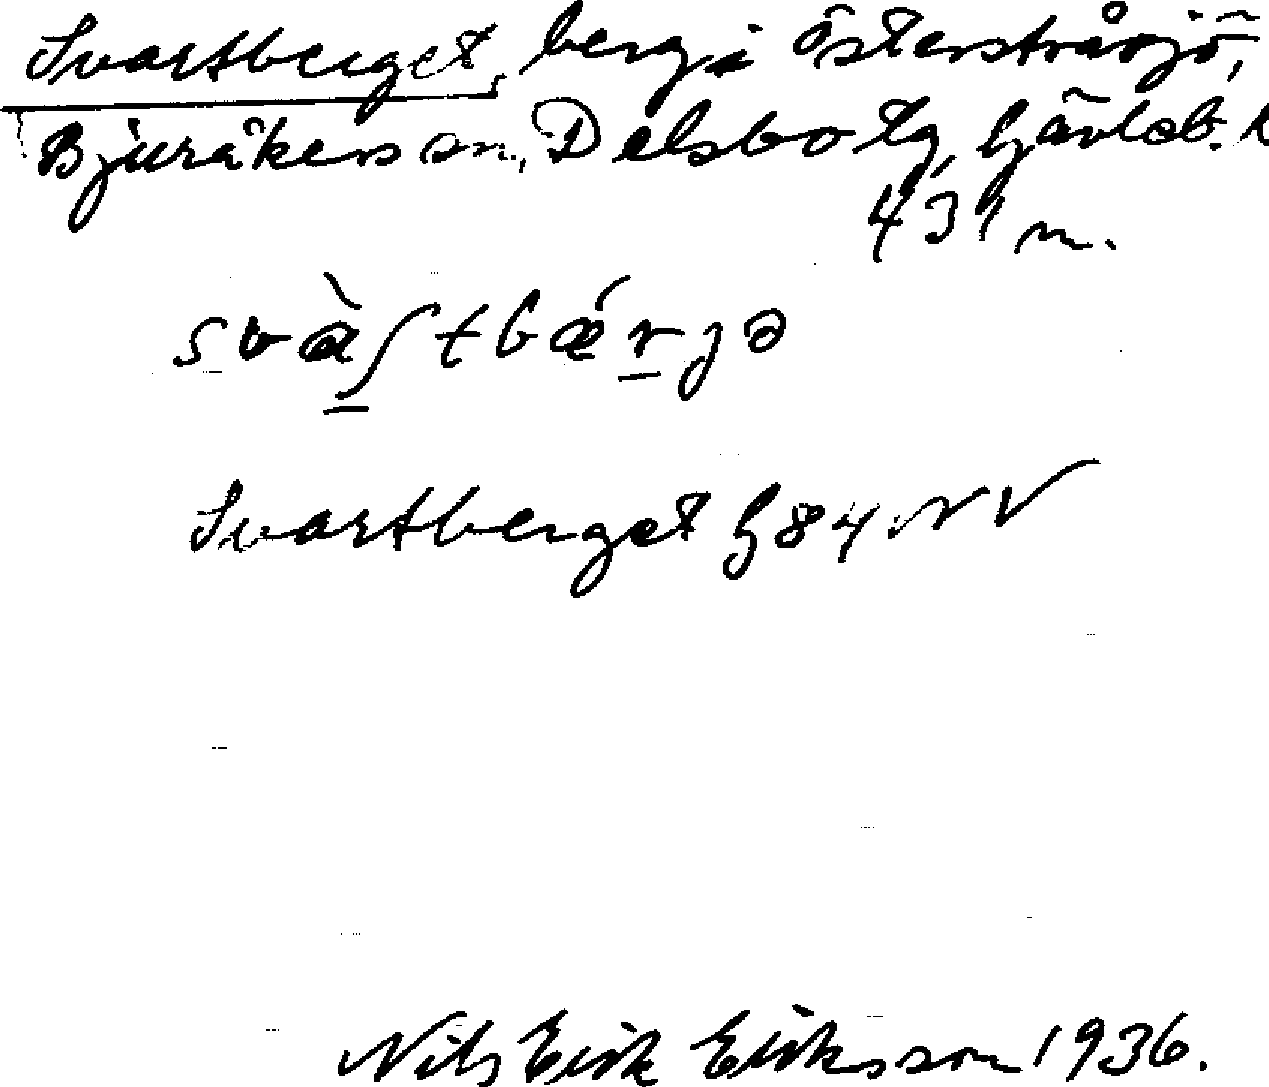 Svartberget, berg i Österstråsjö,
Bjuråkers sn, Delsbo tg, Gävleb. l
431 m.
svàʃtbǽrjə
Svartberget G84 NV
Nils Erik Eriksson 1936.